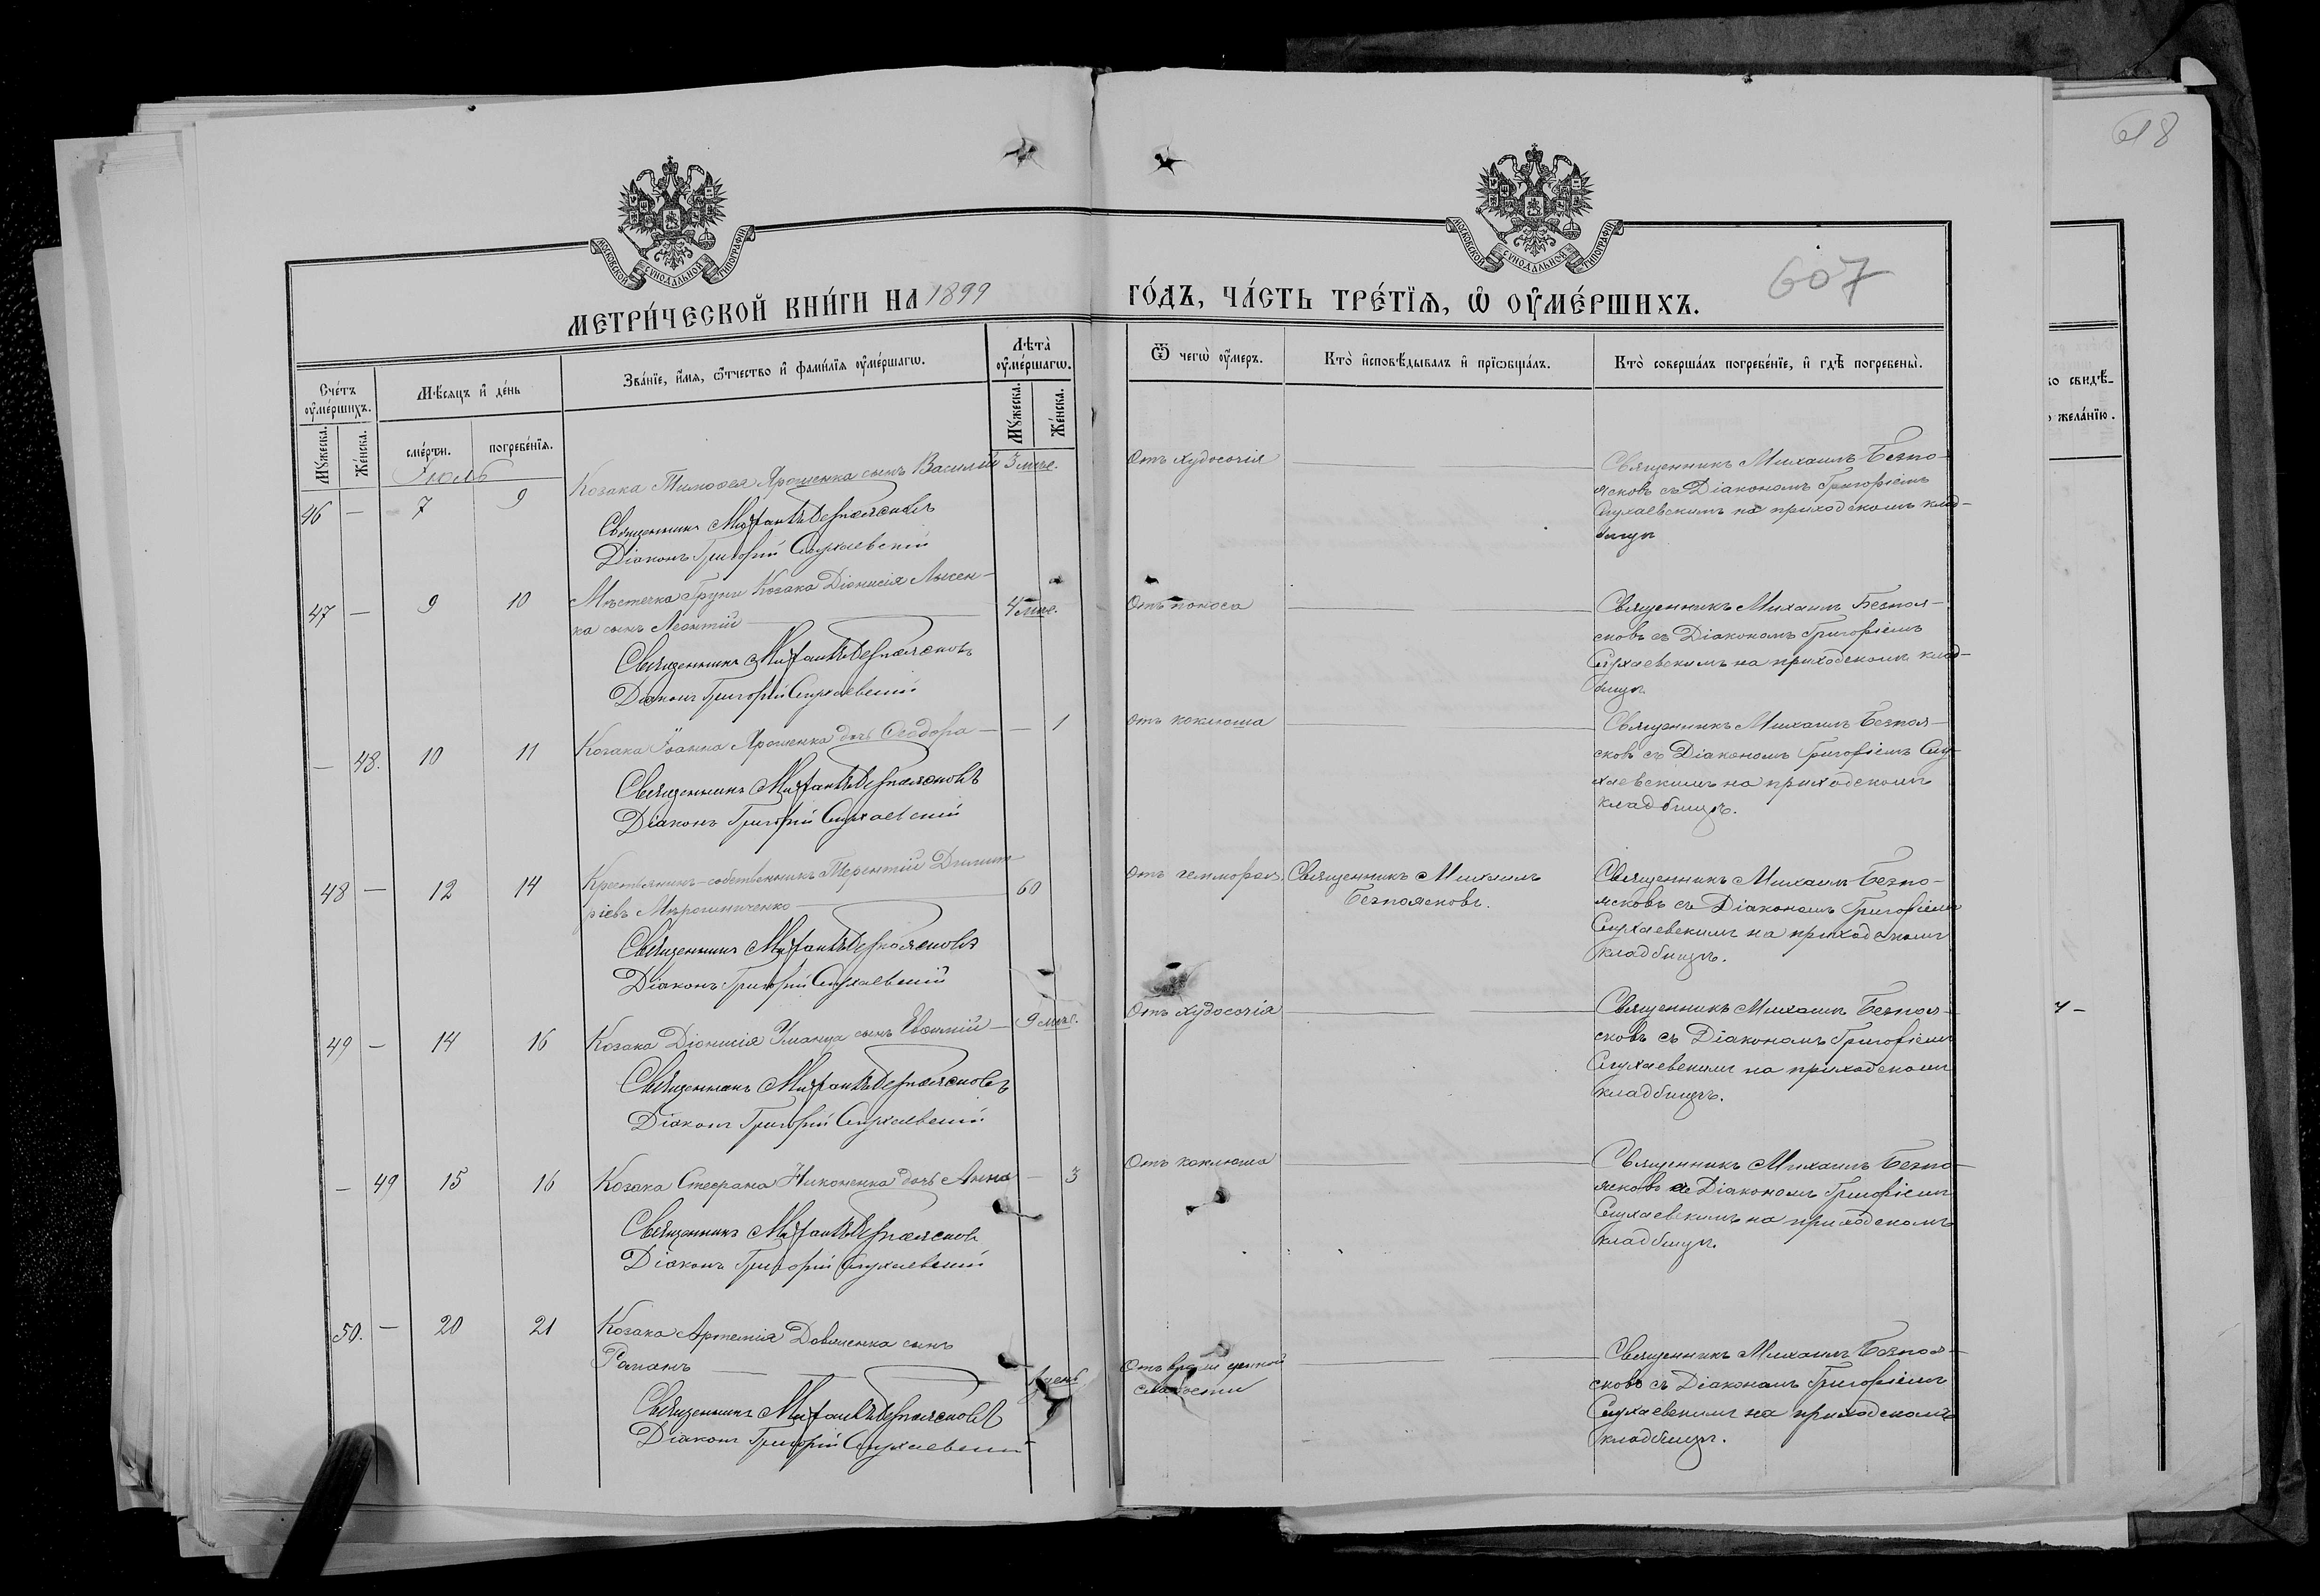 618
МОСКОВСКОЙ СѴНОДАЛЬНОЙ ТИПОГРАФІИ
МОСКОВСКОЙ СѴНОДАЛЬНОЙ ТИПОГРАФІИ
607
МЕТРИ́ЧЕСКОЙ КНИ́ГИ НА 1899 ГО́ДЪ, ЧА́СТЬ ТРЕ́ТІѦ, Ѡ҆ ОУ҆МЕ́РШИХЪ.
Сче́тъ оу҆ме́ршихъ.
Мꙋ́жеска.
Же́нска.
Мѣ́сѧцъ и҆ де́нь
сме́рти.
погребе́нїѧ.
Зва́нїе, и҆́мѧ, ѻ҆́тчество и҆ фами́лїѧ оу҆ме́ршагѡ.
Лѣ́та оу҆ме́ршагѡ.
Мꙋ́жеска.
Же́нска.
Ѿ чегѡ̀ оу҆́меръ.
Кто̀ и҆сповѣ́дывалъ и҆ прїѡбща́лъ.
Кто̀ соверша́лъ погребе́нїе, и҆ гдѣ̀ погребены̀.
ко свидѣ-
жела́нїю.
Іюль
46 — 7 9 Козака Тимоѳея Ярошенка сынъ Василій 3 мѣс.
Священникъ Михаилъ Безпоясковъ
Діаконъ Григорій Слухаевскій
Отъ худосочія
Священникъ Михаилъ Безпо-
ясковъ съ Діакономъ Григоріемъ
Слухаевскимъ на приходскомъ клад-
бищѣ
47 — 9 10 Мѣстечка Груни Козака Діонисія Лысен-
ка сынъ Леонтій 4 мѣс.
Священникъ Михаилъ Безпоясковъ
Діаконъ Григорій Слухаевскій
Отъ поноса
Священникъ Михаилъ Безпоя-
сковъ съ Діакономъ Григоріемъ
Слухаевскимъ на приходскомъ клад-
бищѣ.
— 48. 10 11 Козака Іоанна Ярошенка дочь Ѳеодора — 1
Священникъ Михаилъ Безпоясковъ
Діаконъ Григорій Слухаевскій
Отъ коклюша
Священникъ Михаилъ Безпоя-
сковъ съ Діакономъ Григоріемъ Слу-
хаевскимъ на приходскомъ
кладбищѣ.
48 — 12 14 Крестьянинъ-собственникъ Терентій Димит-
ріевъ Мирошниченко 60
Священникъ Михаилъ Безпоясковъ
Діаконъ Григорій Слухаевскій
Отъ геммороя.
Священникъ Михаилъ
Безпоясковъ.
Священникъ Михаилъ Безпо-
ясковъ съ Діакономъ Григоріемъ
Слухаевскимъ на приходскомъ
кладбищѣ.
49 — 14 16 Козака Діонисія Уманца сынъ Евѳимій 9 мѣс.
Священникъ Михаилъ Безпоясковъ
Діаконъ Григорій Слухаевскій
Отъ худосочія
Священникъ Михаилъ Безпоя-
сковъ съ Діакономъ Григоріемъ
Слухаевскимъ на приходскомъ
кладбищѣ.
— 49 15 16 Козака Стефана Никоненка дочь Анна — 3
Священникъ Михаилъ Безпоясковъ
Діаконъ Григорій Слухаевскій
Отъ коклюша
Священникъ Михаилъ Безпо-
ясковъ съ Діакономъ Григоріемъ
Слухаевскимъ на приходскомъ
кладбищѣ.
50. — 20 21 Козака Артемія сынъ
Романъ 1 день
Священникъ Михаилъ Безпоясковъ
Діаконъ Григорій Слухаевскій
Отъ
слабости
Священникъ Михаилъ Безпоя-
сковъ съ Діакономъ Григоріемъ
Слухаевскимъ на приходскомъ
кладбищѣ.